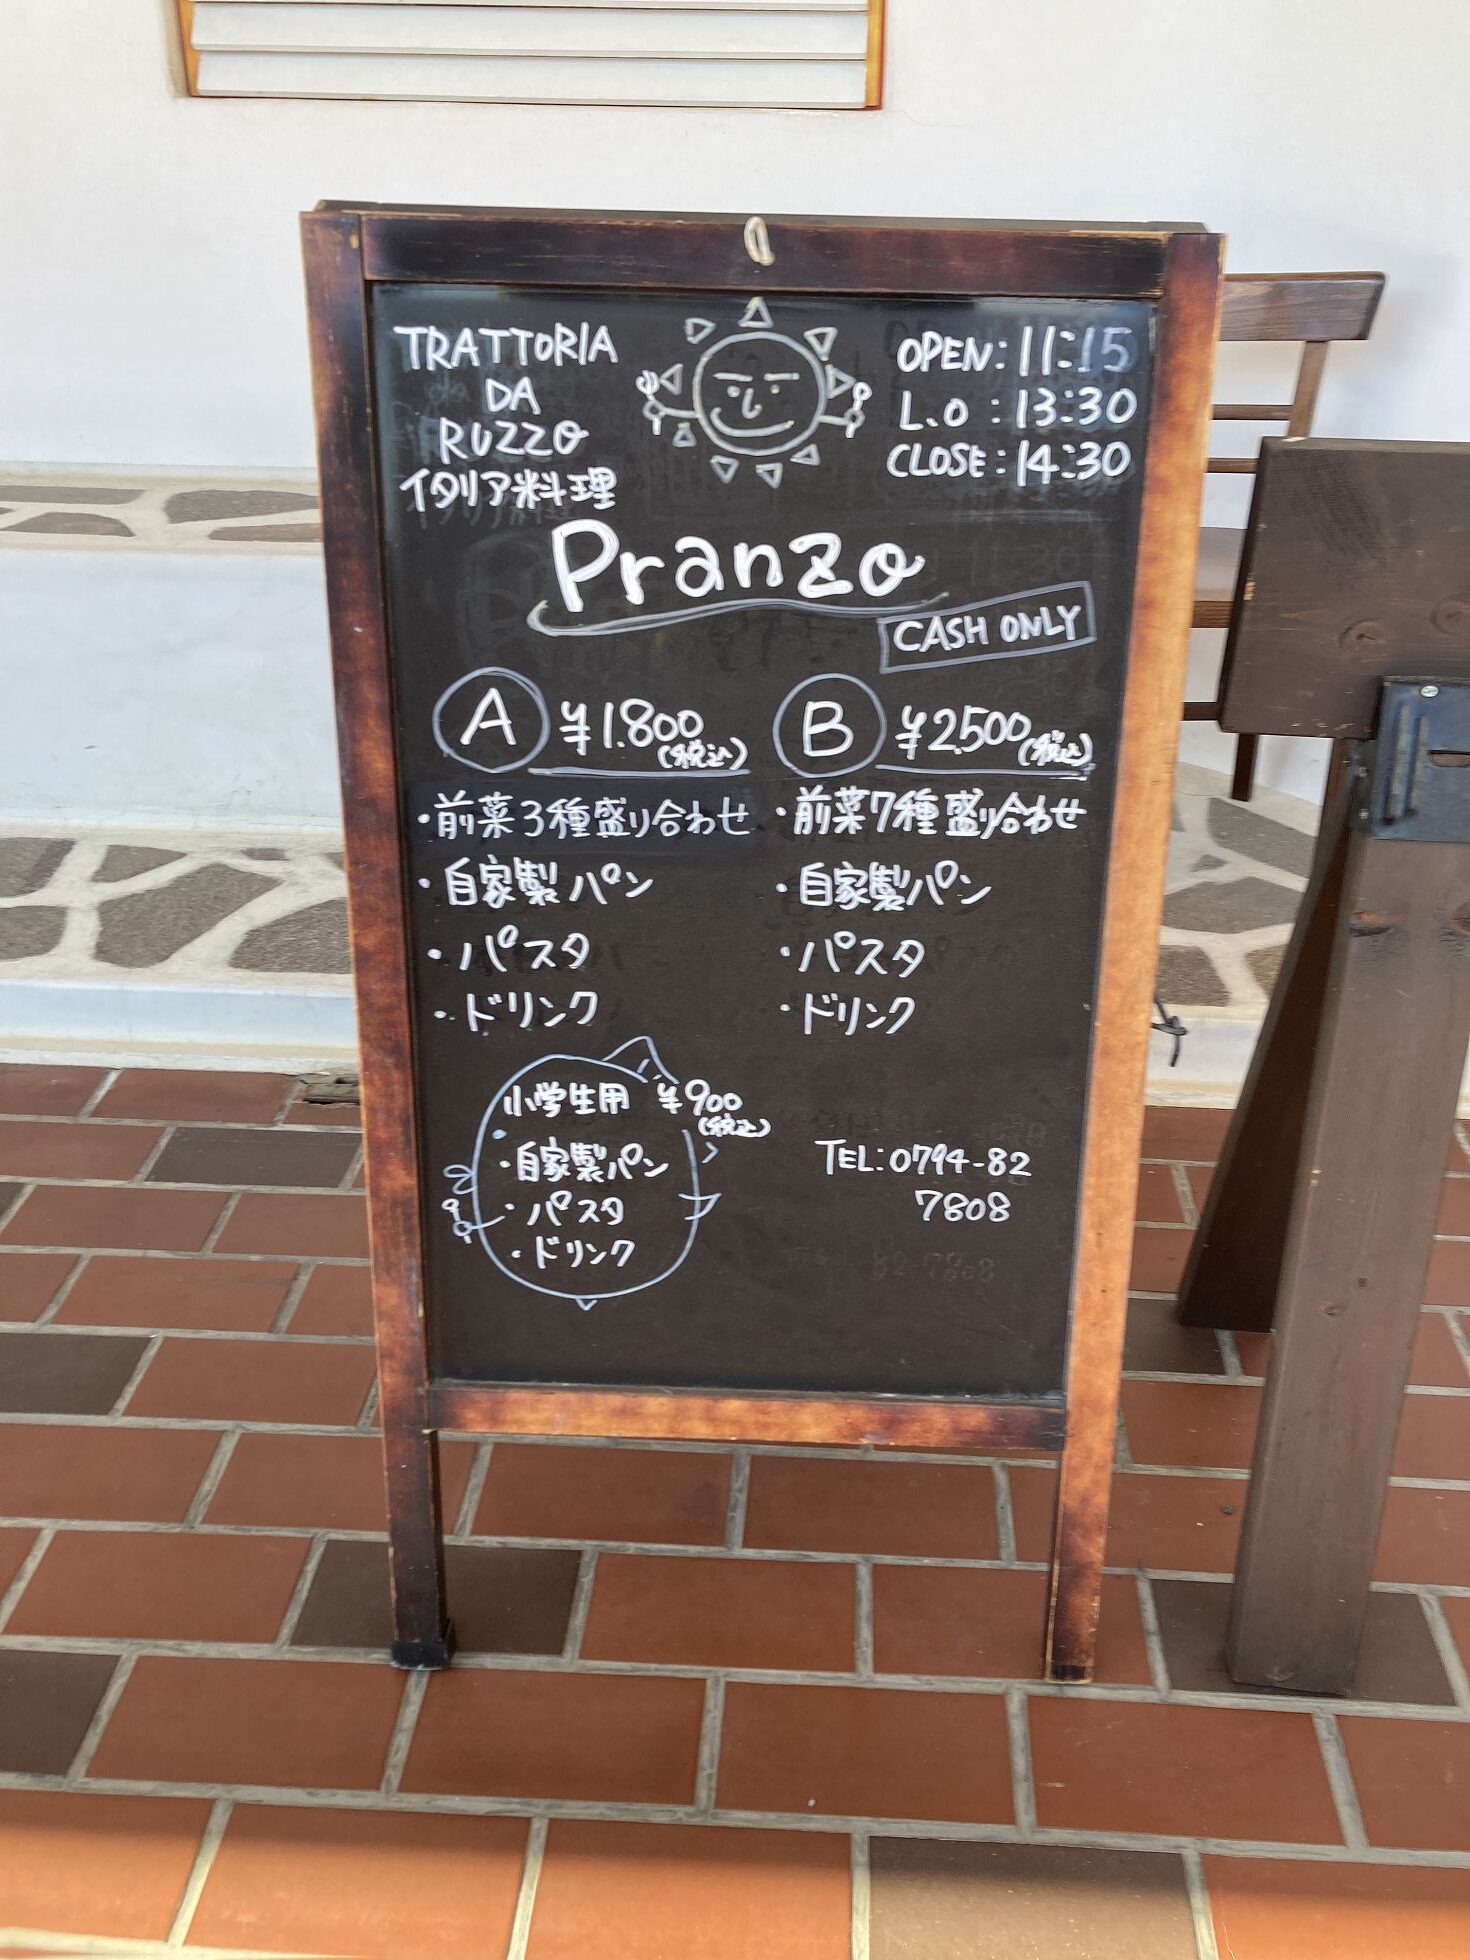 TRATTORIA
DA
RUZZO
イタリア料理
OPEN: 11:15
L.O : 13:30
CLOSE: 14:30
Pranzo
CASH ONLY
A ¥1.800(税込)
・前菜3種盛り合わせ
・自家製パン
・パスタ
・ドリンク
B ¥2.500(税込)
・前菜7種盛り合わせ
・自家製パン
・パスタ
・ドリンク
小学生用 ¥900
(税込)
・自家製パン
・パスタ
・ドリンク
TEL:0794-82
7808